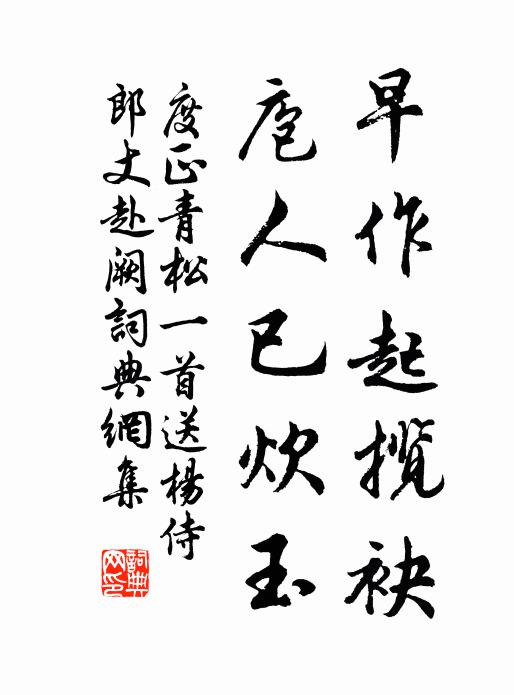 早作起揽袂
庖人已炊玉
度正青松一首送楊侍
郎丈赴阙詞典網集
詞典网印